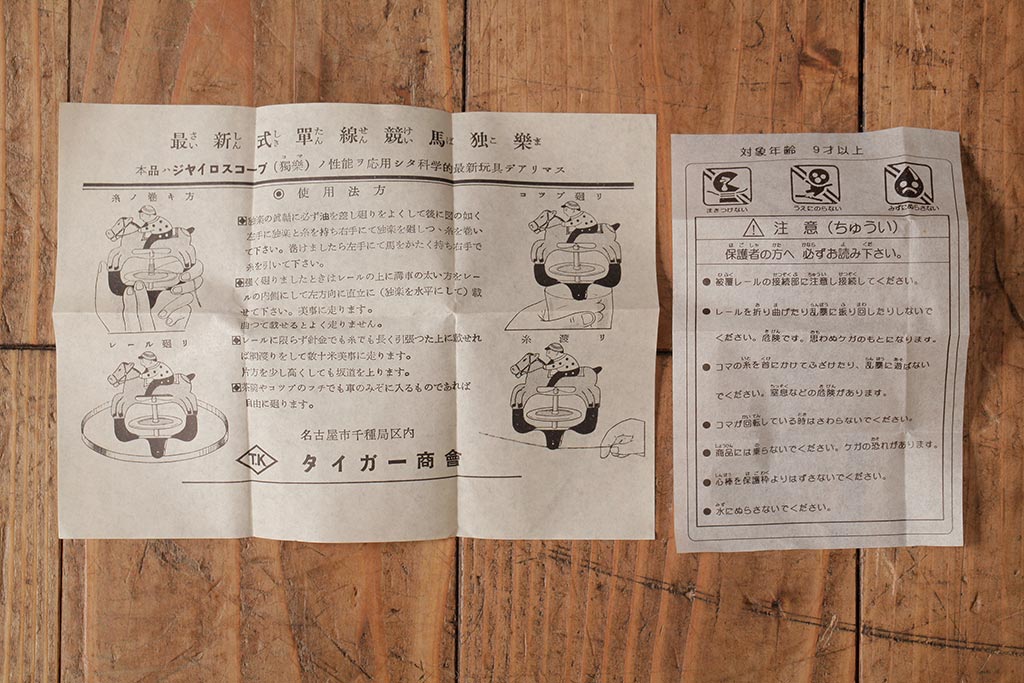 最新式單線競馬独樂
さいしんしきたんせんけいばこま
本品ハジヤイロスコープ(獨樂)ノ性能ヲ応用シタ科学的最新玩具デアリマス
コマ
糸ノ巻キ方
◉ 使用法方
コツプ廻リ
独楽の眞軸に必ず油を差し廻りをよくして後に図の如く
左手に独楽と糸を持ち右手にて独楽を廻しつゝ糸を巻い
て下さい。巻けましたら左手にて馬をかたく持ち右手で
糸を引いて下さい。
強く廻りましたときはレールの上に溝車の太い方をレー
ルの内側にして左方向に直立に(独楽を水平にして)載
せて下さい。美事に走ります。
曲つて載せるとよく走りません。
レールに限らず針金でも糸でも長く引張つた上に載せれ
ば綱渡りをして数十米美事に走ります。
片方を少し高くしても坂道を上ります。
茶碗やコツプのフチでも車のみぞに入るものであれば
自由に廻ります。
レール廻リ
糸渡リ
名古屋市千種局区内
T.K タイガー商會
対象年齢 9才以上
まきつけない
うえにのらない
みずにぬらさない
⚠ 注意(ちゅうい)
ほごしゃ かた かなら よ くだ
保護者の方へ 必ずお読み下さい。
● 被覆レールの接続部に注意し接続してください。
● レールを折り曲げたり乱暴に振り回したりしないで
ください。危険です。思わぬケガのもとになります。
● コマの糸を首にかけてふざけたり、乱暴に遊ばない
でください。窒息などの危険があります。
● コマが回転している時はさわらないでください。
● 商品には乗らないでください。ケガの恐れがあります。
● 心棒を保護枠よりはずさないでください。
● 水にぬらさないでください。